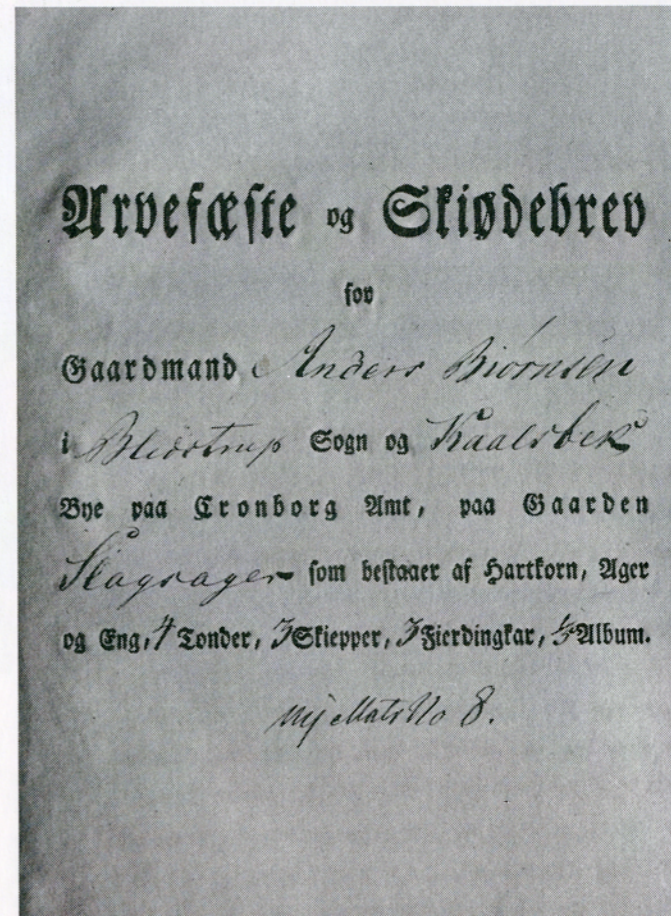 Arvefæste og Skiødebrev
for
Gaardmand Anders Biørnsen
i Blidstrup Sogn og Kaalsbek
Bye paa Cronborg Amt, paa Gaarden
Slagsager som bestaaer af Hartkorn, Ager
og Eng, 4 Tonder, 3 Skiepper, 3 Fierdingkar, ⅓ Album.
nye Mats No 8.